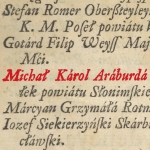 Stefan Romer Oberszteyley
K. M. Poseł powiátu W
Gotárd Filip Weyss Maj
Mći.
Michał Károl Aráburdá
łek powiátu Słonimskie
Márcyan Grzymałá Rotm
Iozef Siekierzyński Skárb
cławski.